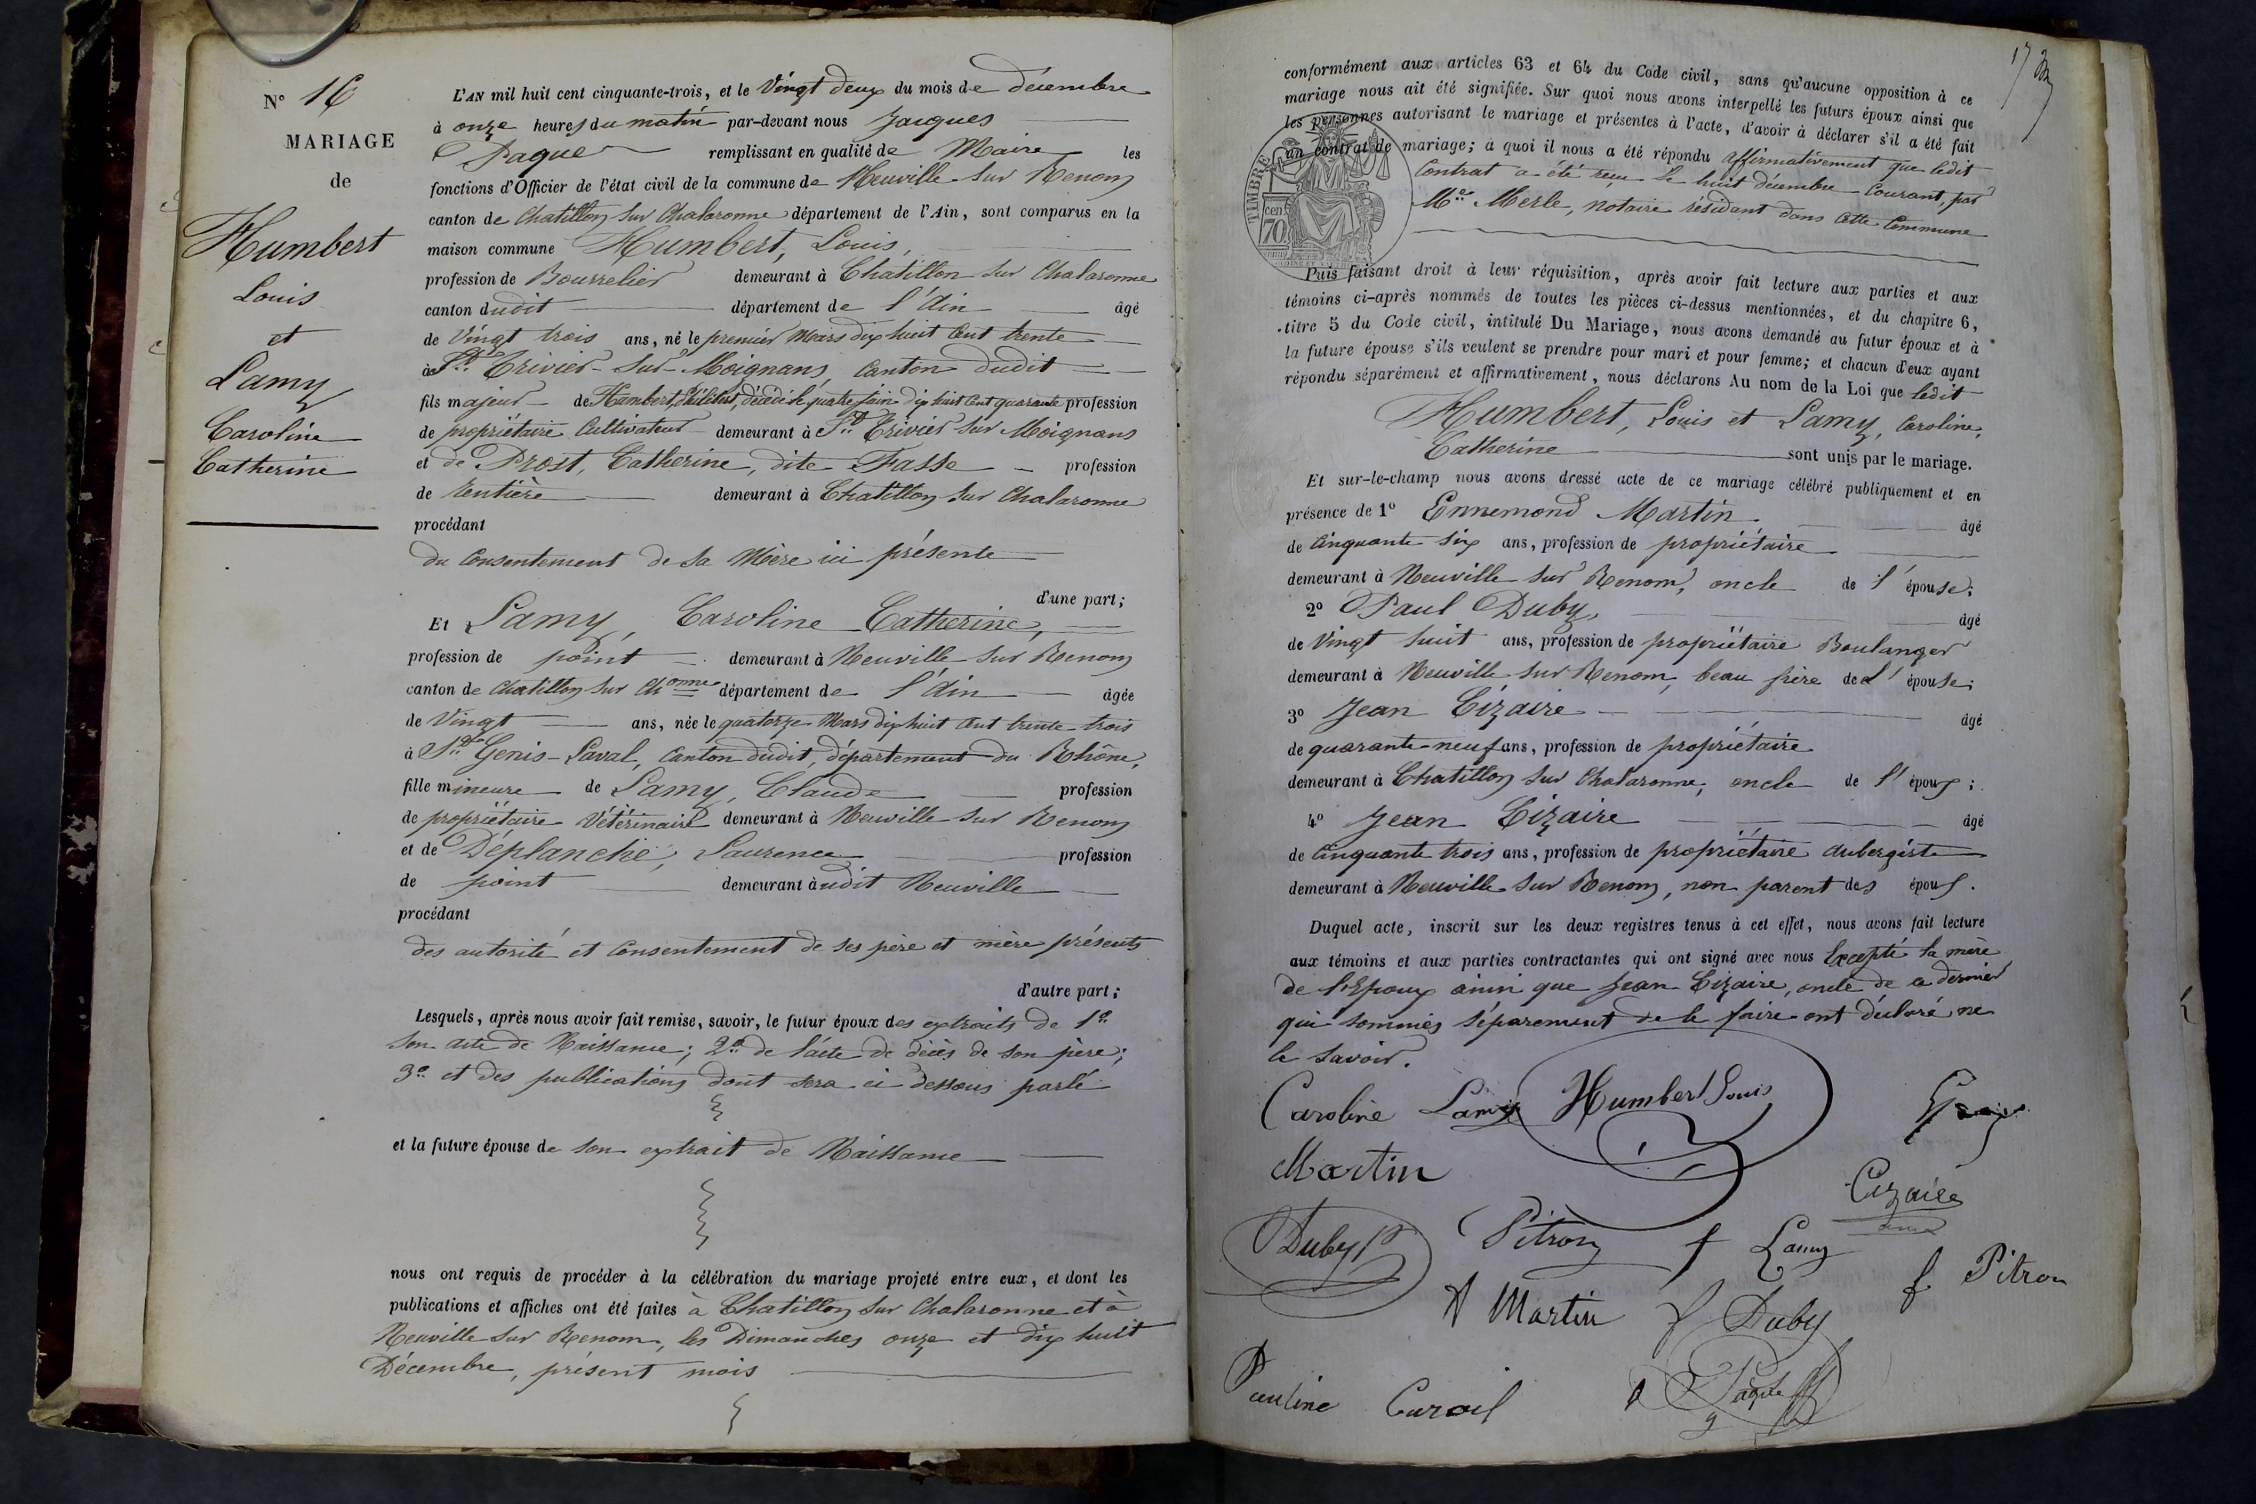 N° 16
MARIAGE
de
Humbert
Louis
et
Lamy
Caroline
Catherine
L'AN mil huit cent cinquante-trois, et le Vingt deux du mois de décembre
à onze heures du matin par-devant nous Jacques
Paque remplissant en qualité de Maire les
fonctions d'Officier de l'état civil de la commune de Neuville sur Renom
canton de Chatillon sur Chalaronne département de l'Ain, sont comparus en la
maison commune Humbert, Louis,
profession de Bourrelier demeurant à Chatillon sur Chalaronne
canton dudit département de l'Ain âgé
de Vingt trois ans, né le premier Mars dix huit cent trente
à St Trivier-sur-Moignans, Canton dudit
fils majeur de Humbert, décédé le quatre juin dix huit cent quarante profession
de propriétaire Cultivateur demeurant à St Trivier sur Moignans
et de Prost, Catherine, dite Fasse profession
de rentière demeurant à Chatillon sur Chalaronne
procédant
du Consentement de sa Mère ici présente
d'une part;
Et Lamy, Caroline Catherine,
profession de point demeurant à Neuville sur Renom
canton de Chatillon sur Chonne département de l'Ain âgée
de Vingt ans, née le quatorze Mars dix huit cent trente trois
à St Genis-Laval, Canton dudit, département du Rhône,
fille mineure de Lamy, Claude profession
de propriétaire Vétérinaire demeurant à Neuville sur Renom
et de Déplanche, Laurence profession
de point demeurant àudit Neuville
procédant
des autorité et Consentement de ses père et mère présents
d'autre part;
Lesquels, après nous avoir fait remise, savoir, le futur époux des extraits de 1°
son acte de Naissance; 2° de l'acte de décès de son père;
3° et des publications dont sera ci dessous parlé
et la future épouse de son extrait de Naissance
nous ont requis de procéder à la célébration du mariage projeté entre eux, et dont les
publications et affiches ont été faites à Chatillon sur Chalaronne et à
Neuville sur Renom, les Dimanches onze et dix huit
Décembre, présent mois
conformément aux articles 63 et 64 du Code civil, sans qu'aucune opposition à ce
mariage nous ait été signifiée. Sur quoi nous avons interpellé les futurs époux ainsi que
les personnes autorisant le mariage et présentes à l'acte, d'avoir à déclarer s'il a été fait
un contrat de mariage; à quoi il nous a été répondu affirmativement que ledit
Contrat a été reçu le huit décembre Courant, par
Me Merle, notaire résidant dans cette Commune
TIMBRE
cent
70
Puis faisant droit à leur réquisition, après avoir fait lecture aux parties et aux
témoins ci-après nommés de toutes les pièces ci-dessus mentionnées, et du chapitre 6,
titre 5 du Code civil, intitulé Du Mariage, nous avons demandé au futur époux et à
la future épouse s'ils veulent se prendre pour mari et pour femme; et chacun d'eux ayant
répondu séparément et affirmativement, nous déclarons Au nom de la Loi que ledit
Humbert, Louis et Lamy, Caroline,
Catherine sont unis par le mariage.
Et sur-le-champ nous avons dressé acte de ce mariage célébré publiquement et en
présence de 1° Ennemond Martin âgé
de Cinquante six ans, profession de propriétaire
demeurant à Neuville sur Renom, oncle de l'épouse;
2° Paul Duby, âgé
de Vingt huit ans, profession de propriétaire Boulanger
demeurant à Neuville sur Renom, beau frère de l'épouse;
3° Jean Cizaire âgé
de quarante-neuf ans, profession de propriétaire
demeurant à Chatillon sur Chalaronne, oncle de l'époux;
4° Jean Cizaire âgé
de Cinquante trois ans, profession de propriétaire aubergiste
demeurant à Neuville sur Renom, non parent des époux.
Duquel acte, inscrit sur les deux registres tenus à cet effet, nous avons fait lecture
aux témoins et aux parties contractantes qui ont signé avec nous Excepté la mère
de l'Epoux ainsi que Jean Cizaire, oncle de ce dernier
qui sommés séparement de le faire ont déclaré ne
le savoir.
Caroline Lamy Humbert Louis
Martin
Cizaire
Duby P Pitron f Lamy
A Martin f Duby f. Pitron
Pauline Curvil Paque